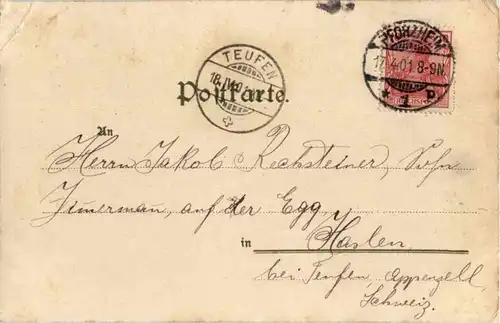 PFORZHEIM
17.4.01.8-9N.
* 1 D
TEUFEN
18.IV.01
Postkarte.
An
Herrn Jakob Rechsteiner, Sohn
Zimerman, auf der Egg
in Haslen
bei Teufen, Appenzell
Schweiz.